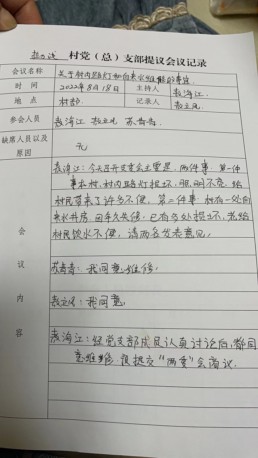 村党（总）支部提议会议记录
会议名称 关于村内路灯和自来水维修的事宜
时 间 2022年8月18日 主持人 袁海江
地 点 村部 记录人 赵立凡
参会人员 袁海江 赵立凡 苏青青
缺席人员以及原因 无
会议内容
袁海江：今天召开支委会主要是两件事 第一件
事本村，村内路灯损坏，照明不亮给
村民带来了许多不便。第二件事 村有一处自
来水井房，因年久失修，已有多处损坏，先给
村民饮水不便，请两名发表意见。
苏青青：我同意维修。
赵立凡：我同意。
袁海江：经党支部成员认真讨论后，都同
意维修 提交“两委”会商议